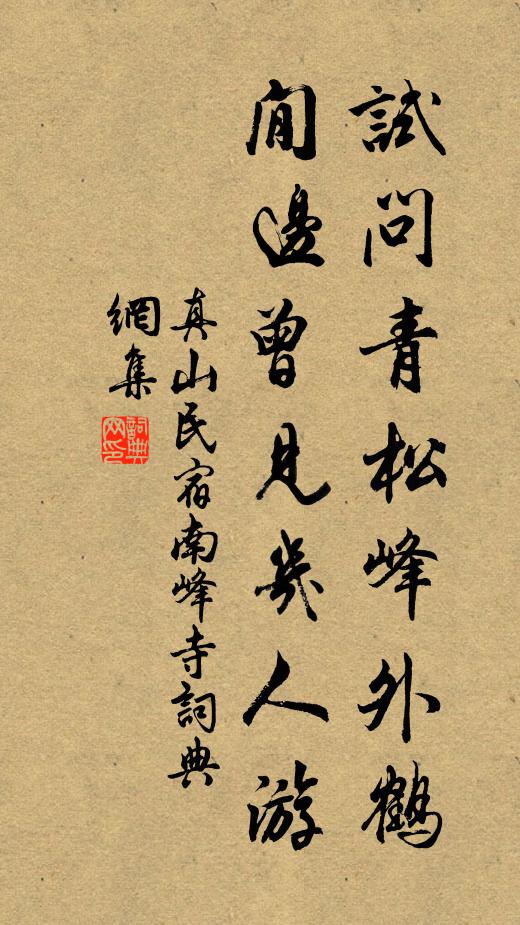 試問青松峰外鶴
閒邊曾見幾人游
真山民宿南峰寺詞典
網集
詞典
网印